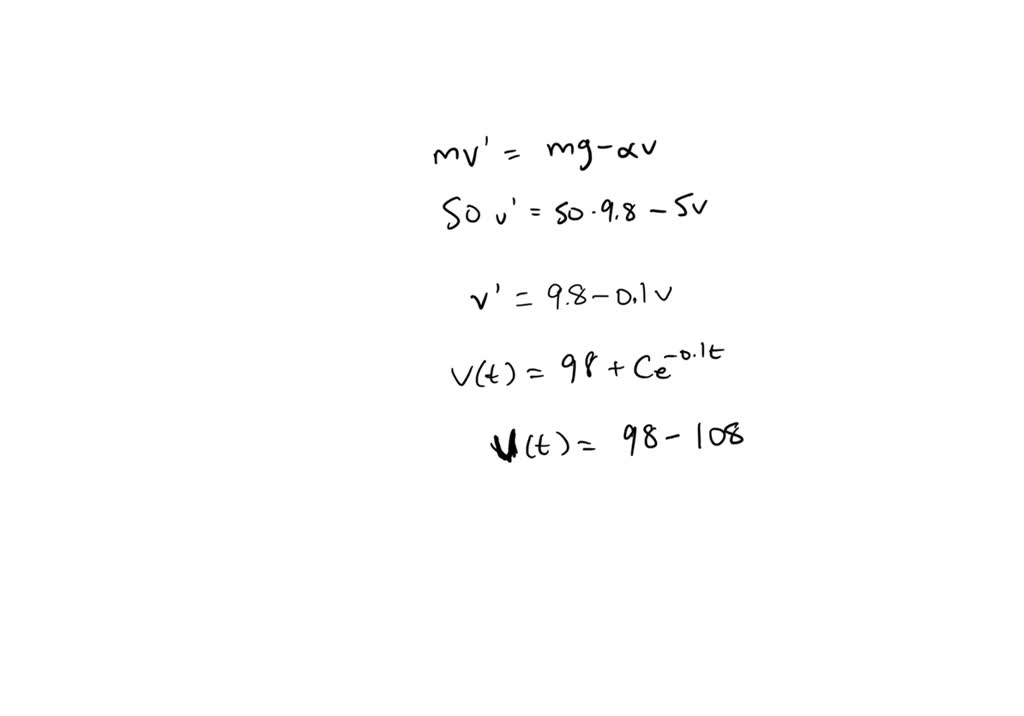 mv' = mg-αv
50 v' = 50·9.8 - 5v
v' = 9.8-0.1v
v(t) = 98 + Ce^-0.1t
v(t) = 98 - 108